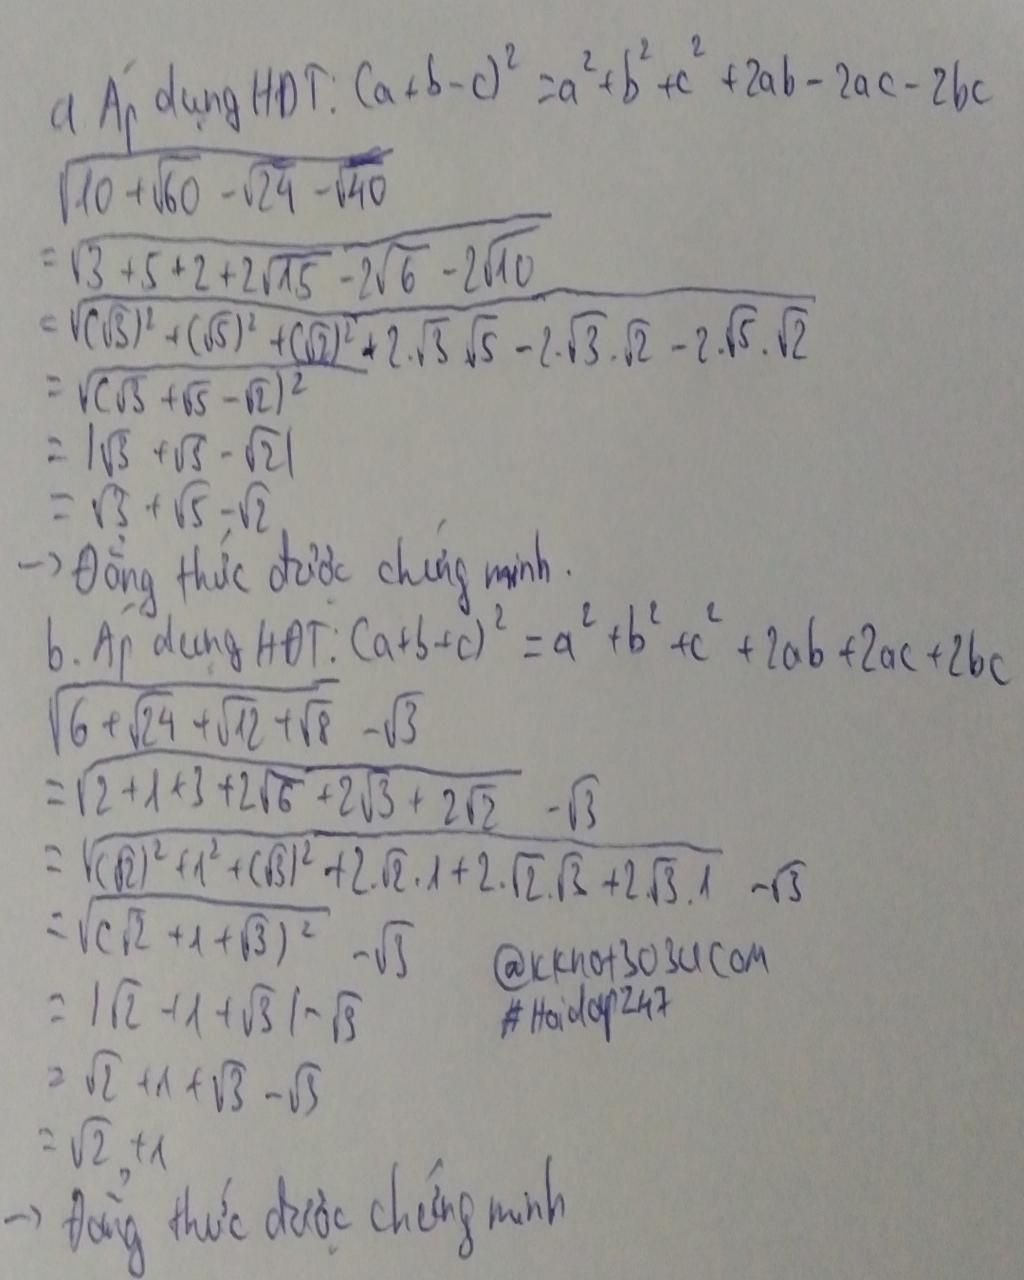 a. Áp dụng HĐT: (a+b-c)² = a²+b²+c²+2ab-2ac-2bc
√(10+√60-√24-√40)
= √(3+5+2+2√15-2√6-2√10)
= √((√3)²+(√5)²+(√2)²+2.√3.√5-2.√3.√2-2.√5.√2)
= √((√3+√5-√2)²)
= |√3+√5-√2|
= √3+√5-√2
-> Đẳng thức được chứng minh.
b. Áp dụng HĐT: (a+b+c)² = a²+b²+c²+2ab+2ac+2bc
√(6+√24+√12+√8) -√3
= √(2+1+3+2√6+2√3+2√2) -√3
= √((√2)²+1²+(√3)²+2.√2.1+2.√2.√3+2.√3.1) -√3
= √((√2+1+√3)²) -√3
= |√2+1+√3|-√3
= √2+1+√3-√3
= √2+1
-> Đẳng thức được chứng minh
#Hoidap247